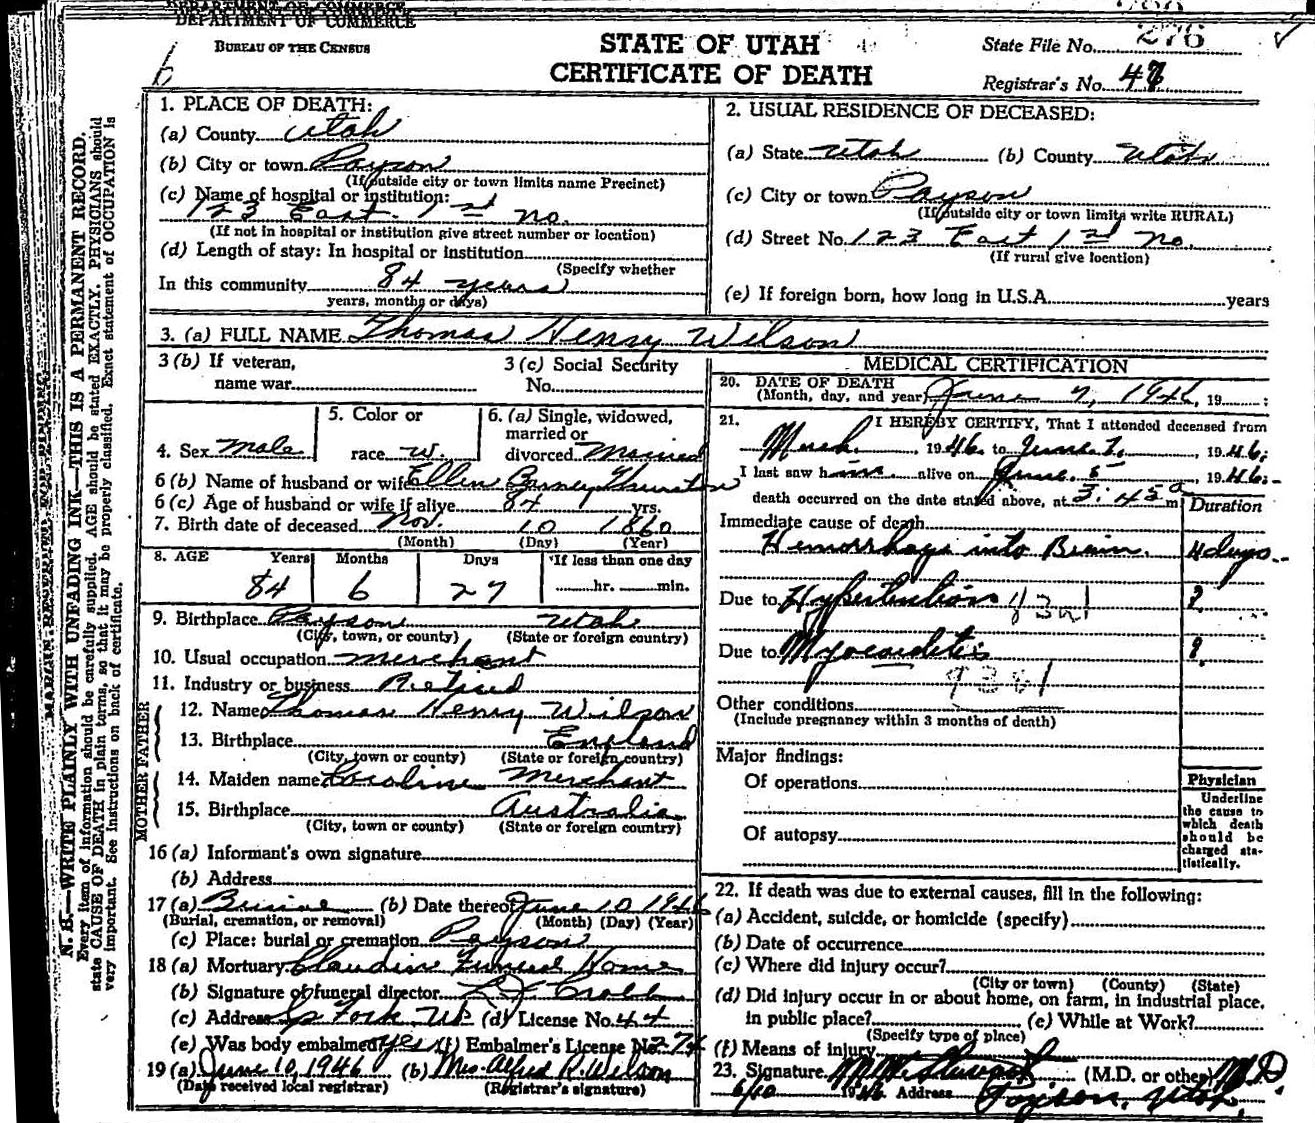 DEPARTMENT OF COMMERCE
DEPARTMENT OF COMMERCE
BUREAU OF THE CENSUS
STATE OF UTAH
CERTIFICATE OF DEATH
State File No. 276
Registrar's No. 47
N. B.—WRITE PLAINLY WITH UNFADING INK—THIS IS A PERMANENT RECORD.
Every item of information should be carefully supplied. AGE should be stated EXACTLY. PHYSICIANS should
state CAUSE OF DEATH in plain terms, so that it may be properly classified. Exact statement of OCCUPATION is
very important. See instructions on back of certificate.
1. PLACE OF DEATH:
(a) County Utah
(b) City or town Payson
(If outside city or town limits name Precinct)
(c) Name of hospital or institution:
123 East 1st no.
(If not in hospital or institution give street number or location)
(d) Length of stay: In hospital or institution
(Specify whether
In this community 84 years
years, months or days)
2. USUAL RESIDENCE OF DECEASED:
(a) State Utah (b) County Utah
(c) City or town Payson
(If outside city or town limits write RURAL)
(d) Street No. 123 East 1st no.
(If rural give location)
(e) If foreign born, how long in U.S.A. years
3. (a) FULL NAME Thomas Henry Wilson
3 (b) If veteran,
name war
3 (c) Social Security
No.
4. Sex Male
5. Color or
race W.
6. (a) Single, widowed,
married or
divorced Married
6 (b) Name of husband or wife Ellen Barney Thurston
6 (c) Age of husband or wife if alive 84 yrs.
7. Birth date of deceased Nov. 10 1860
(Month) (Day) (Year)
8. AGE Years Months Days If less than one day
84 6 27 hr. min.
9. Birthplace Payson Utah
(City, town, or county) (State or foreign country)
10. Usual occupation merchant
11. Industry or business Retired
FATHER
12. Name Thomas Henry Wilson
13. Birthplace England
(City, town or county) (State or foreign country)
MOTHER
14. Maiden name Caroline Merchant
15. Birthplace Australia
(City, town or county) (State or foreign country)
16 (a) Informant's own signature
(b) Address
17 (a) Burial (b) Date thereof June 10 1946
(Burial, cremation, or removal) (Month) (Day) (Year)
(c) Place: burial or cremation Payson
18 (a) Mortuary Claudin Funeral Home
(b) Signature of funeral director
(c) Address Sp Fork Ut. (d) License No. 44
(e) Was body embalmed? yes (f) Embalmer's License No. 274
19 (a) June 10, 1946 (b) Mrs. Alfred R. Wilson
(Date received local registrar) (Registrar's signature)
MEDICAL CERTIFICATION
20. DATE OF DEATH
(Month, day, and year) June 7, 1946, 19 ;
21. I HEREBY CERTIFY, That I attended deceased from
March, 1946, to June 7, 1946;
I last saw him alive on June 5, 1946;
death occurred on the date stated above, at 3:45 a m
Duration
Immediate cause of death
Hemorrhage into Brain. 4 days
Due to Hypertension 83a1 ?
Due to Myocarditis ?
93d1
Other conditions
(Include pregnancy within 3 months of death)
Major findings:
Of operations
Of autopsy
Physician
Underline
the cause to
which death
should be
charged sta-
tistically.
22. If death was due to external causes, fill in the following:
(a) Accident, suicide, or homicide (specify)
(b) Date of occurrence
(c) Where did injury occur?
(City or town) (County) (State)
(d) Did injury occur in or about home, on farm, in industrial place,
in public place? (e) While at Work?
(Specify type of place)
(f) Means of injury
23. Signature M. Stewart (M.D. or other) M.D.
6/10 1946 Address Payson, Utah.